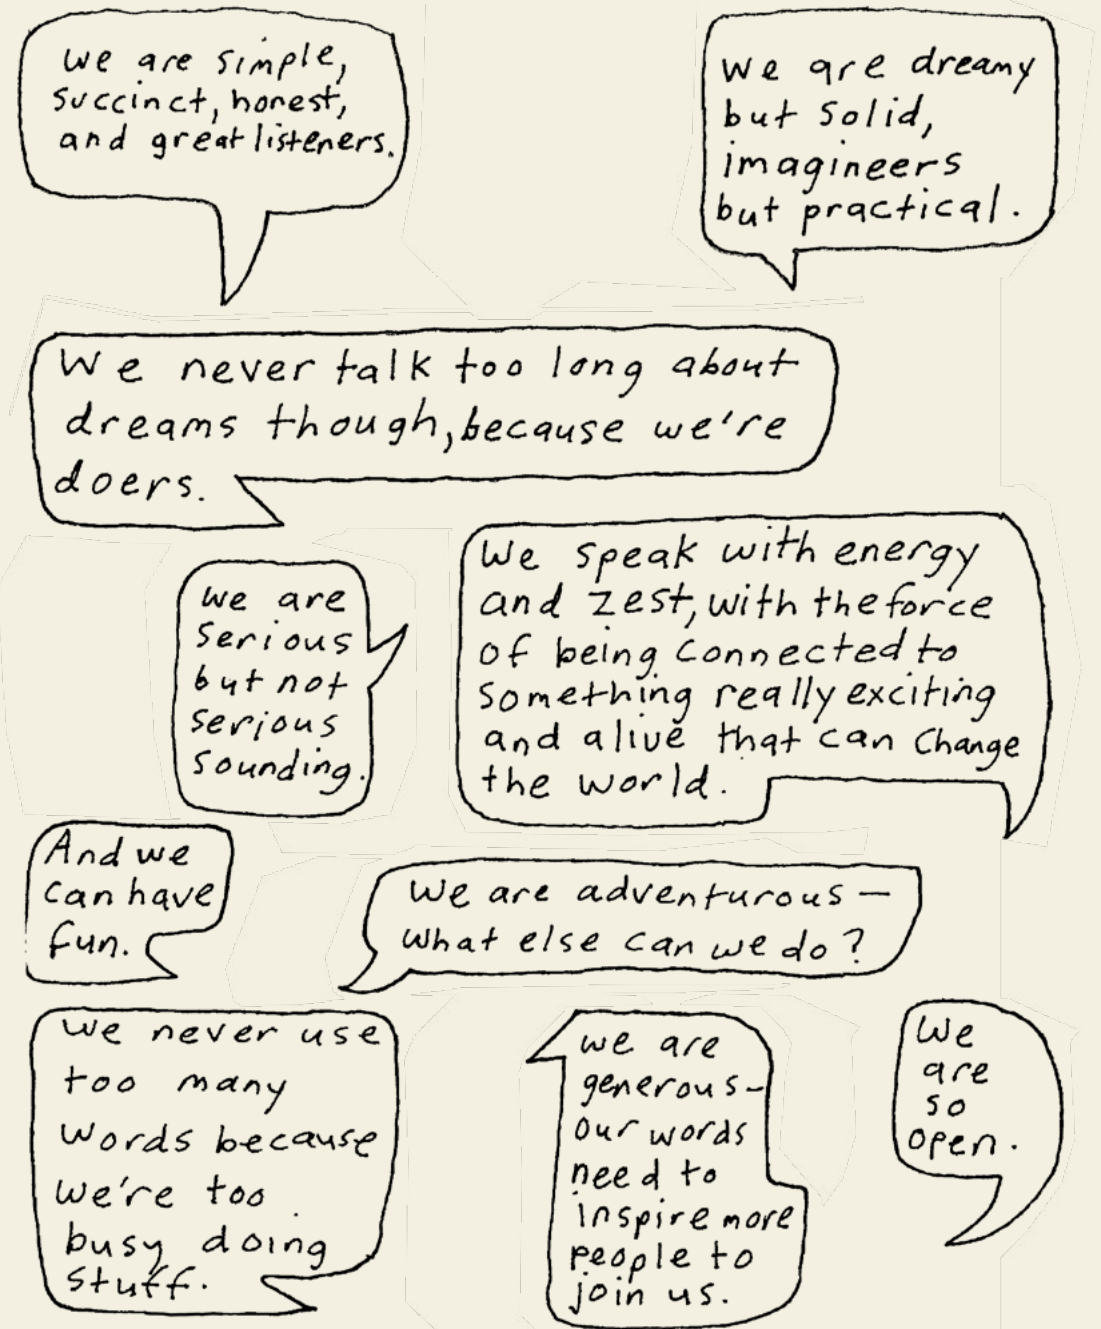 we are simple,
succinct, honest,
and great listeners.
we are dreamy
but solid,
imagineers
but practical.
We never talk too long about
dreams though, because we're
doers.
we are
serious
but not
serious
sounding.
We speak with energy
and zest, with the force
of being connected to
something really exciting
and alive that can change
the world.
And we
can have
fun.
We are adventurous —
what else can we do?
We never use
too many
words because
we're too
busy doing
stuff.
we are
generous-
our words
need to
inspire more
people to
join us.
We
are
so
open.